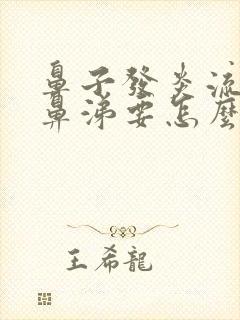 鼻子發炎流
鼻涕要怎麼
王希龍